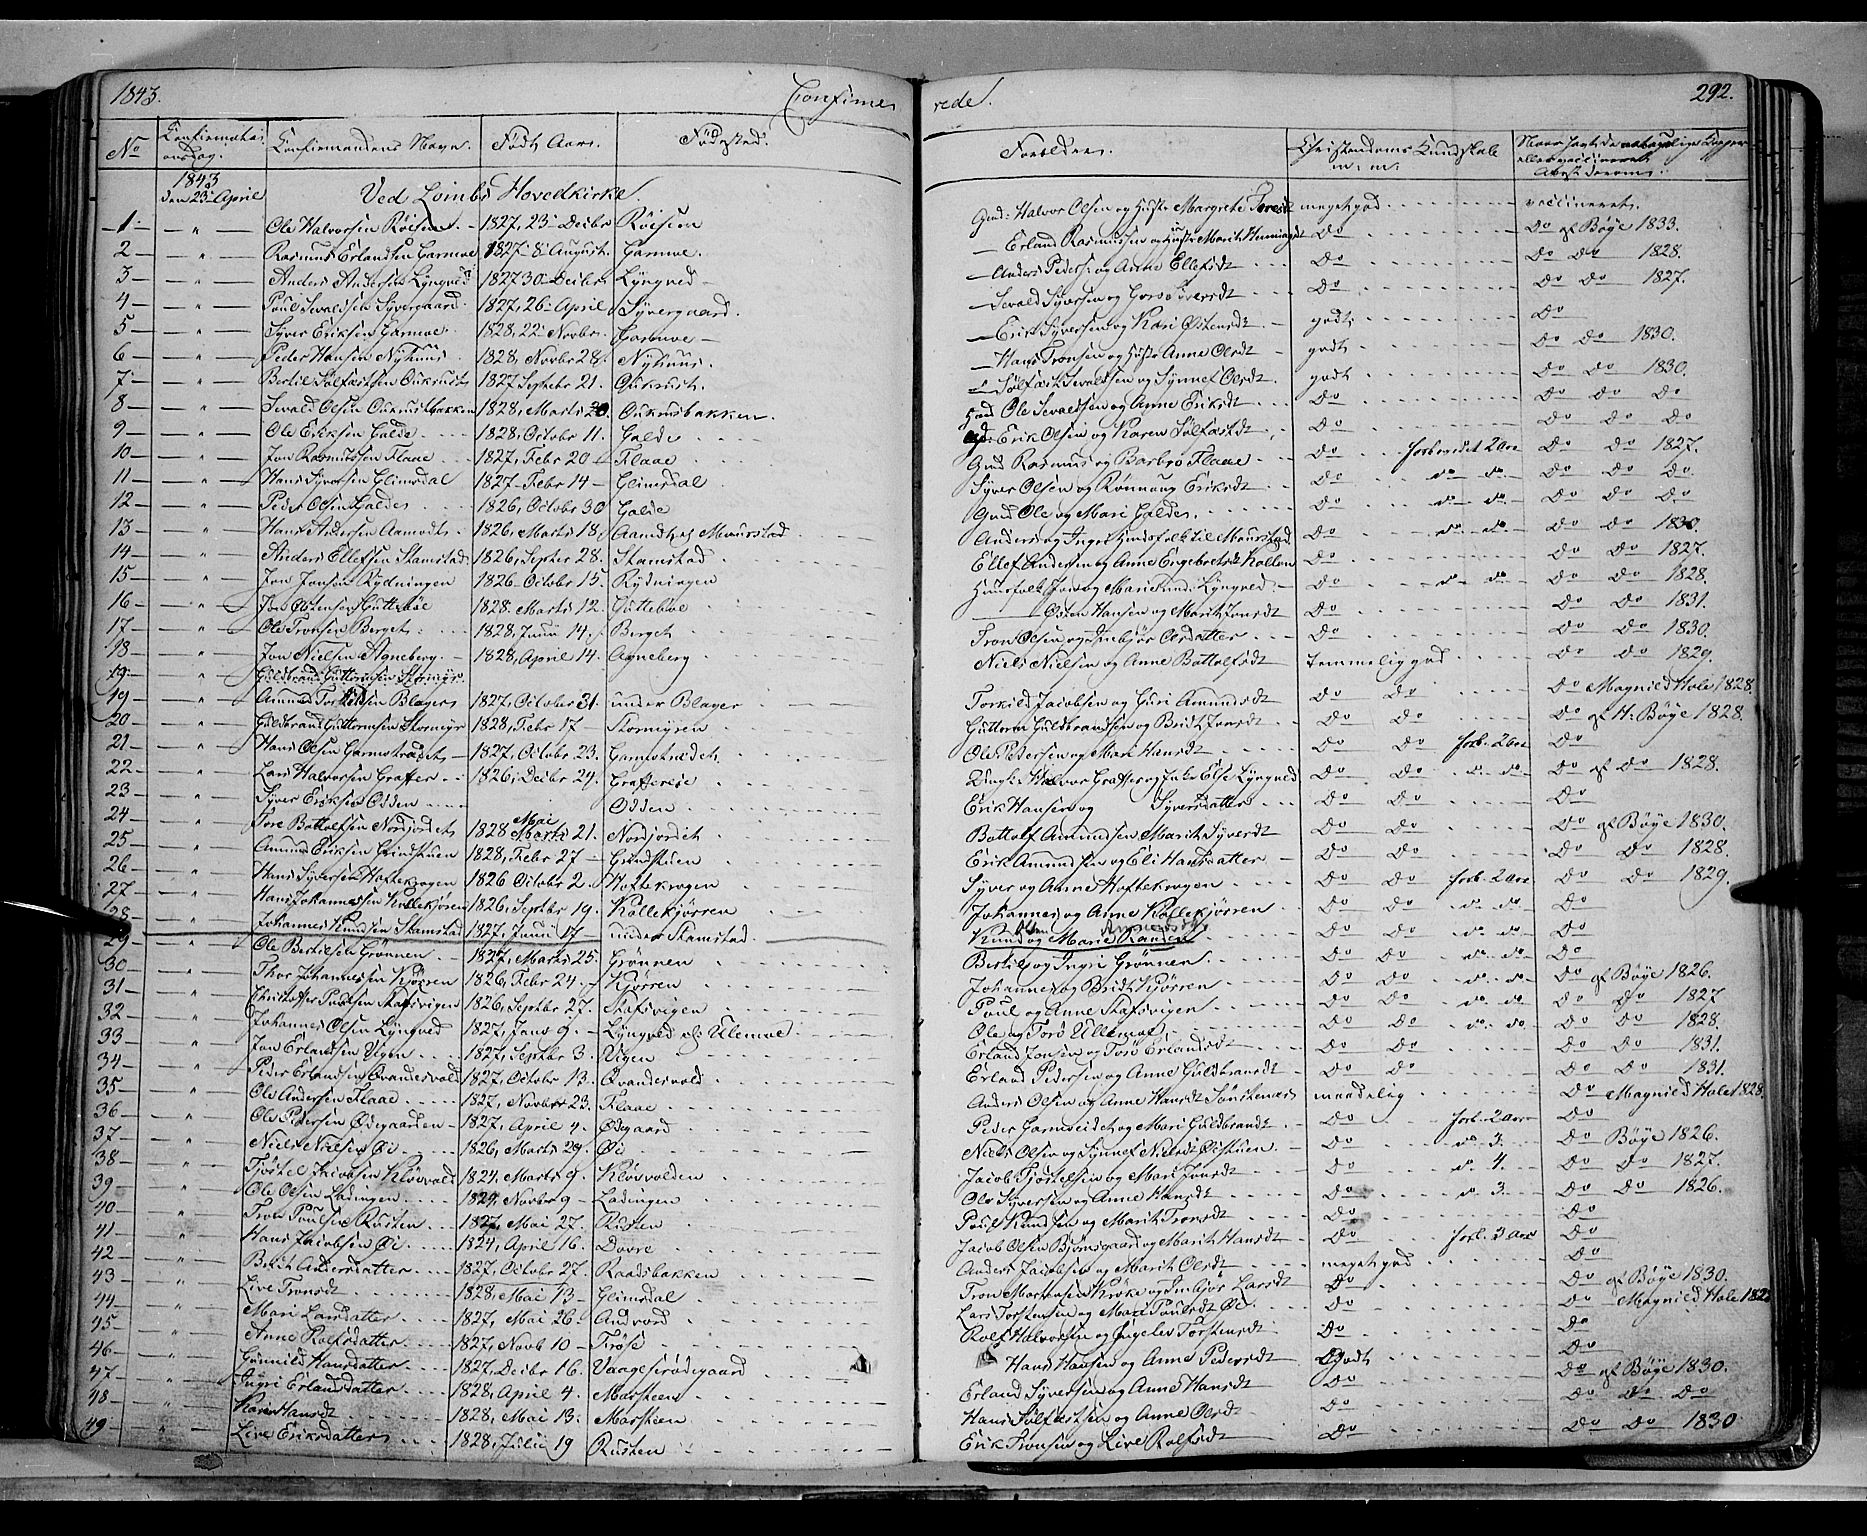 1843. Confirme rede. 292.
No Confirmations dag. Confirmandens Navn. Født Aar. Fødested. Forældre. Christendoms Kundskab m. m. Naar havt de naturlige Kopper eller vaccineret. Attest derom.
1843 den 23 April Ved Lombs Hovedkirke.
1 Ole Halvorsen Röisem 1827, 23 Decbr Röisem Gmd: Halvor Olsen og Hustr Margrete meget god vaccineret.
2 Rasmus Erlandsen Garmoe 1827 8 August. Garmoe. Erland Rasmussen og Hustr Marit Do Do af Böye 1833.
3 Anders Andersen Lyngved 1827 30 Decbr Lyngved Anders Peders. og Anne Ellefsdt Do Do Do 1828.
4 Poul Sevaldsen Syvergaard 1827, 26 April Syvergaard. Sevald Syversen og Do Do Do 1827.
5 Syver Eriksen Garmoe 1828, 22 Novbr Garmoe Erik Syversen og Kari Østensdt godt Do
6 Peder Hansen Nyhuus 1828, Novbr 28. Nyhuus. Hans Tronsen og Hustr Anne Olsdt godt Do Do 1830.
7 Bertil Sølfæstsen Oukrust 1827 Septebr 21. Oukrust. Sølfæst Sevaldsen og Synnef Olsdt. godt Do Do 1830.
8 Sevald Olsen Oukrustbakken 1828, Marts 20. Oukrusbakken. Ole Sevaldsen og Anne Eriksdt Do Do Do Do
9 Ole Eriksen Galde 1828, Octobr 11. Galde Erik Olsen og Karen Sølfæstdt Do Do Do Do
10 Jon Rasmussen Flaae 1827, Febr 20 Flaae Gmd Rasmus og Barbro Flaae Do forberedet 2 Aar Do Do 1827.
11 Hans Syversen Glimsdal 1827 Febr 14 Glimsdal Syver Olsen og Rønnaug Eriksdt Do do do Do Do Do
12 Peder Olsen Galde 1826, Octobr 30 Galde Gmd Ole og Mari Galde. Do do do Do Do Do
13 Hans Andersen Aamodt 1826, Marts 18. Aamodt Anders og Ingri Do do do Do Do 1830
14 Anders Ellefsen Stamstad 1826, Septbr 28. Stamstad Ellef Andersen og Anne Engebretsdt Do Do Do 1827.
15 Jon Jonsen Rydningen 1826 Octobr 15. Rydningen Huusfolk Jon og Mari Do do do Do Do 1828.
16 Jon Østensen Gutteböe 1828 Marts 12. Gutteböe Østen Hansen og Marit Jonsdt Do Do Do 1831.
17 Ole Tronsen Berget 1828, Juni 14. Berget Tron Olsen og Imbjör Olsdatter Do Do Do 1830.
18 Jon Nielsen Agneberg 1828, April 14. Agneberg Niels Nielsen og Anne Bottolfsdt temmelig god Do Do 1829.
19 Guldbrand Guttormsen Stormyr
19 Amund Torkildsen Blager 1827, October 31. under Blager Torkild Jacobsen og Guri Amundsdt Do Do Do Magnild Hole 1828.
20 Guldbrand Guttormsen Stormyr 1828, Febr 17 Stormyren Guttorm Guldbrandsen og Bridt Jonsdt Do Do Do af H. Böye 1828.
21 Hans Olsen Garmotrædet 1827, October 23. Garmotrædet Ole Pedersen og Mari Hansdt Do Do forb. 2 Aar Do
22 Lars Halvorsen Graffer 1826, Decbr 24. Halvor Graffer og Else Lyngved Do Do do do Do af Do 1828.
23 Syver Eriksen Odden Odden Erik Hansen og Syversdatter Do Do Do
24 Tore Bottolfsen Nordjordet 1828 Mai Marts 21. Nordjordet Bottolf Amundsen Marit Syversdt Do Do Do af Böye 1830.
25 Amund Eriksen Grindstuen 1828, Febr 27 Grindstuen Erik Amundsen og Eli Hansdatter Do Do Do Do 1828.
26 Hans Syversen Hoftekrogen 1826 Octobr 2. Hoftekrogen Syver og Anne Hoftekrogen Do Do forb. 2 Aar Do Do 1829.
27 Hans Johannessen Kollekjøren 1826, Septbr 19. Kollekjørren Johannes og Anne Kollekjørren Do Do do do Do
28 Johannes Knudsen Stamstad 1827, Juni 17 under Stamstad. Knud og Marie Do Do do do Do
29 Ole Bertilsen Grönnen 1827, Marts 25 Grönnen Bertil og Ingri Grönnen Do Do do do Do
30 Thor Johannessen Kjörren 1826, Febr 24. Kjörren Johannes og Bridt Kjörren Do Do do do Do af Böye 1826.
31 Christoffer Poulsen Stafsvigen 1826, Septbr 27. Stafsvigen Poul og Anne Stafsvigen Do Do do do Do Do 1827
32 Johannes Olsen Lyngved 1827, Janr 9. Lyngved Ole og Torö Do Do do do Do Do 1828.
33 Jon Erlandsen Vigen 1827, Septbr 3. Vigen Erland Jonsen og Torö Erlandsdt Do Do Do Do 1831.
34 Peder Erlandsen Qvandesvold 1827 Octobr 13. Qvandesvold Erland Pedersen og Anne Guldbrandsdt Do Do Do Do 1831.
35 Ole Andersen Flaae 1827, Novbr 23. Flaae Anders Olsen og Anne Hansdt maadelig Do Magnild Hole 1828.
36 Ole Pedersen Ødegaarden 1827, April 4. Ødegaard Peder og Mari Guldbrandsdt Do forb. 2 Aar Do
37 Niels Nielsen Øi 1826, Marts 29. Øi Niels Olsen og Synnef Nielsdt Do do 3. Do Böye 1826.
38 Tjöstel Jacobsen Klöwvold 1824, Marts 9. Klöwvolden Jacob Tjöstelsen og Mari Jonsdt Do do 4. Do Do 1827.
39 Ole Olsen Ladingen 1824. Novbr 9 Ladingen Ole Syversen og Anne Hansdt Do do 3. Do Do 1826.
40 Tron Poulsen Rusten 1827, Mai 27. Rusten Poul Knudsen og Marit Tronsdt Do Do
41 Hans Jacobsen Øi 1824, April 16. Dovre Jacob Olsen Bjornsgaard og Marit Hansdt Do forb. 3 Aar Do
42 Berit Andersdatter 1827, Octobr 27. Raadsbakken Anders Jacobsen og Marit Olsdt meget god Do
43 Live Tronsdt 1828, Mai 13 Glimsdal Tron og Imbjör Larsdt Do Do af Böye 1830.
44 Mari Larsdatter 1827, Mai 26 Andvord Lars Torstensen og Mari Poulsdt Do Do Magnild Hole
45 Anne Rolfsdatter 1827, Novb 10 Tröse Rolf Halvorsen og Ingelev Torstensdt Do Do
46 Gunnild Hansdatter 1827, Decbr 16. Vaagesrødegaard Hans Hansen og Anne Pedersdt godt Do
47 Ingri Erlandsdatter 1828, April 4. Marsteen Erland Syversen og Anne Hansdt Do Do af Böye 1830.
48 Kari Hansdt 1828, Mai 13. Marsteen Hans Sølfæstsen og Anne Olsdt Do Do Do Do
49 Live Eriksdatter 1828, Julii 19 Rusten Erik Tronsen og Live Rolfsdt Do Do Do 1830